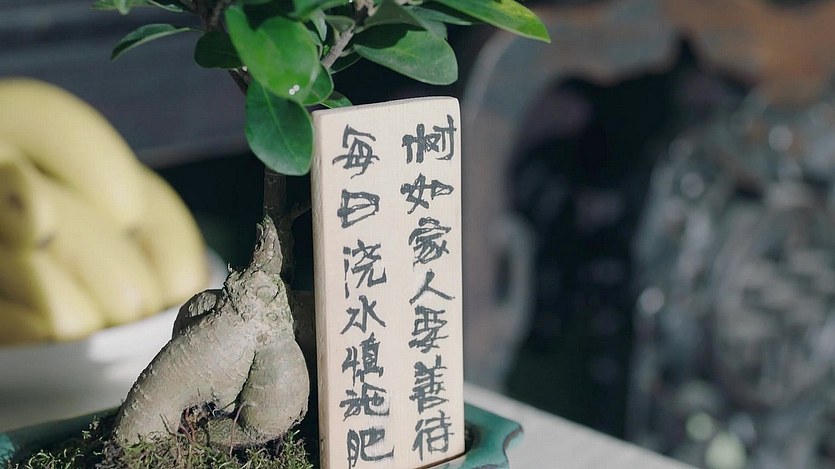 树如家人要善待
每日浇水慎施肥